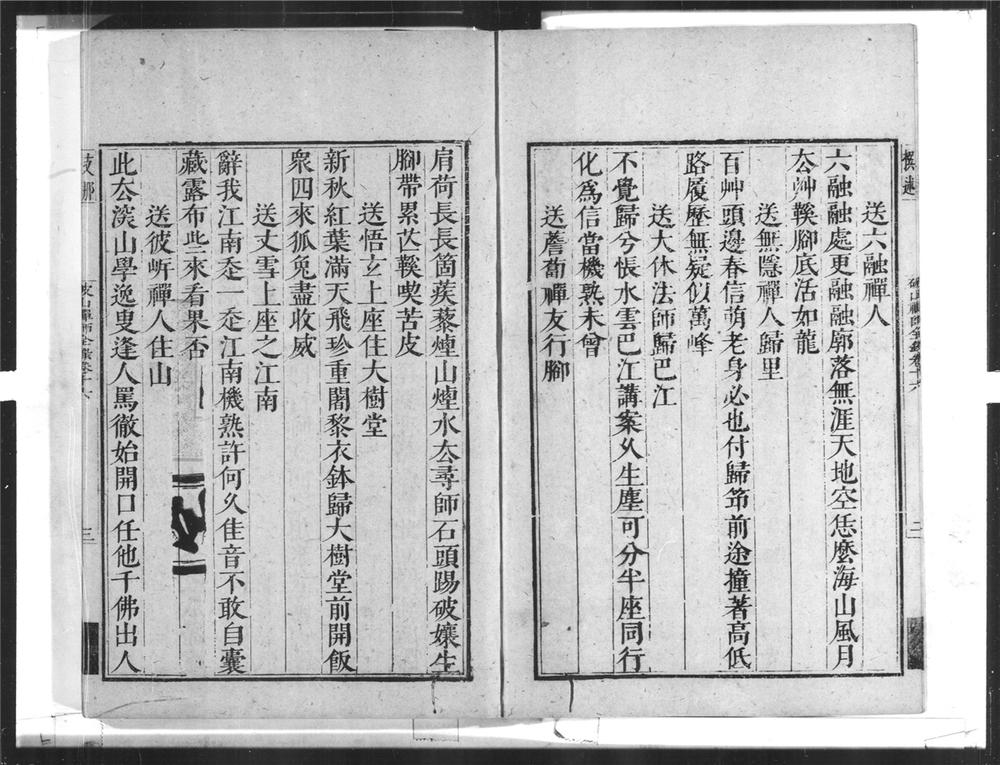 送六融禪人
六融融處更融融廓落無涯天地空恁麼海山風月
厺艸鞵腳底活如龍
送無隱禪人歸里
百艸頭邊春信萌老身必也付歸笻前途撞著高低
路履歷無疑似萬峰
送大休法師歸巴江
不覺歸兮悵水雲巴江講案久生塵可分半座同行
化為信當機熟未曾
送薝蔔禪友行腳
肩荷長長箇蒺藜煙山煙水厺尋師石頭踢破孃生
腳帶累芒鞵喫苦皮
送悟玄上座住大樹堂
新秋紅葉滿天飛珍重闍黎衣鉢歸大樹堂前開飯
衆四來狐兔盡收威
送丈雪上座之江南
辭我江南走一走江南機熟許何久佳音不敢自囊
藏露布些來看果否
送彼岸禪人住山
此厺深山學逸叟逢人罵徹始開口任他千佛出人